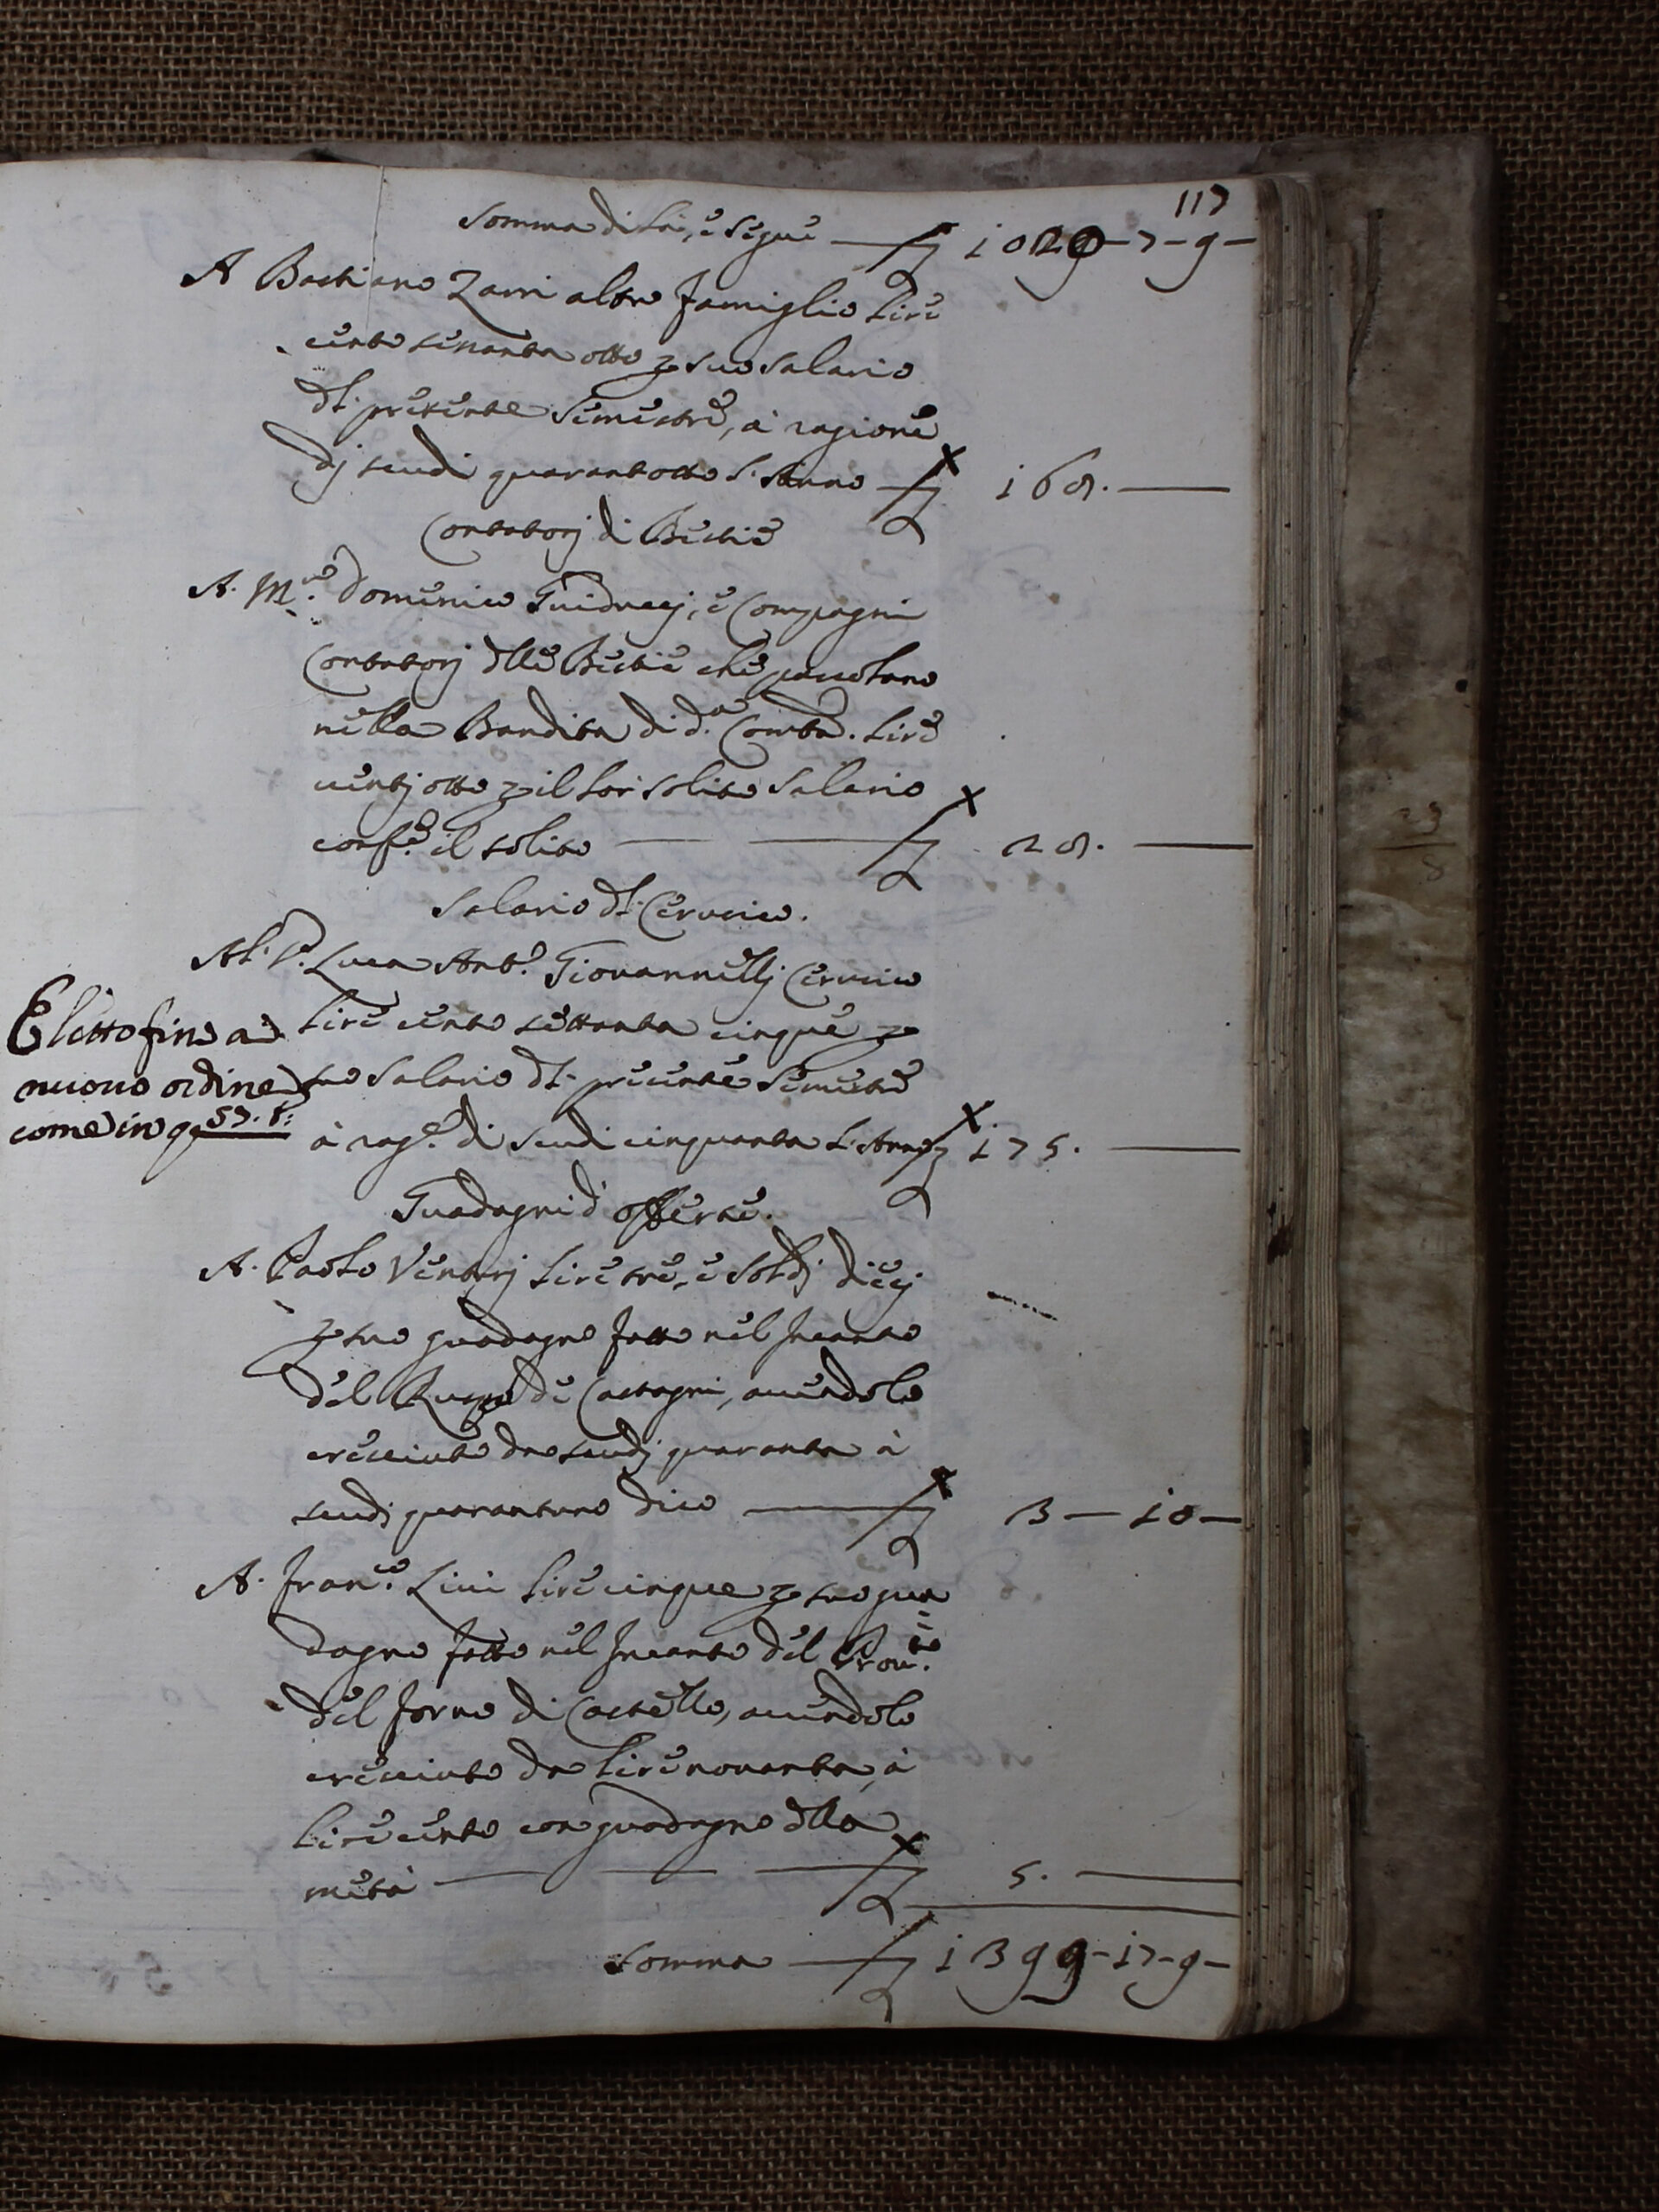 117
Somma di là, e segue ₤ 1020-7-9-
A Bastiano Zani altro famiglio lire
cento sessanta otto p suo salario
dl. presente semestre, à ragione
dj scudi quarantotto l'Anno ₤ 168.
Contatorj di Bestie
A. M.ro Domenico Guiduccj, e Compagni
Contatorj dlle Bestie che pascolano
nella Bandita di d.a Comtà. lire
ventj otto p il lor solito salario
conf.e il solito ₤ 28.
Salario dl. Cerusico.
Al. S.r Luca Ant.o Giovannellj Cerusico
lire cento settanta cinque p
suo salario dl. presente semestre
à rag.e di scudi cinquanta l'Anno ₤ 175.
Eletto fino a
nuovo ordine
come in q 57. t:
Guadagni d'offerte.
A. Paolo Venturj lire tre, e soldj diecj
p suo guadagno fatto nel Incanto
del Ruspo de Castagni, avendolo
cresciuto da scudj quaranta à
scudi quarantuno dico ₤ 3-10-
A. Fran.co Livi lire cinque p suo gua
dagno fatto nel Incanto del Prov.to
del forno di Castello, avendolo
cresciuto da lire novanta, à
lire cento con guadagno dlla
metà ₤ 5.
Somma ₤ 1399-17-9-